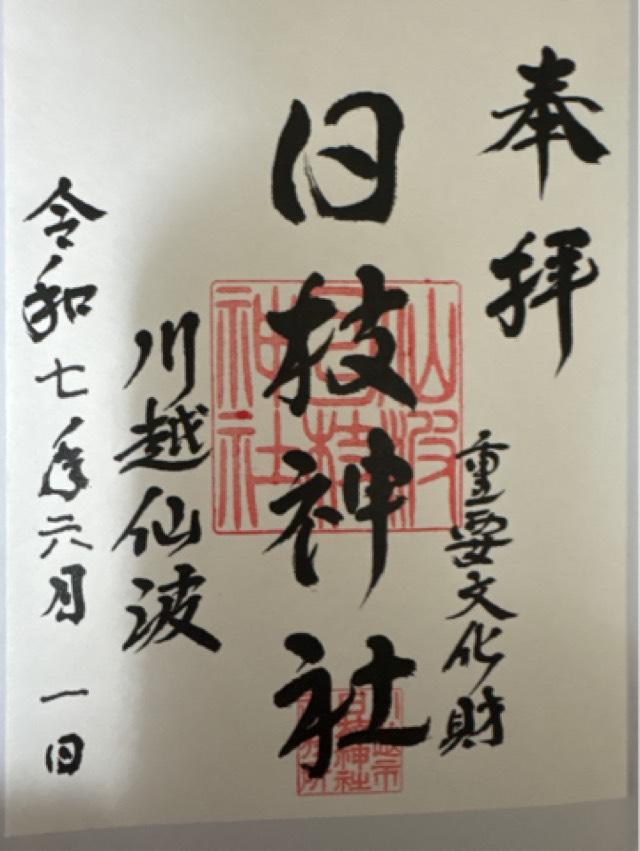 奉拝
重要文化財
日枝神社
川越仙波
令和七年六月一日
仙波
日枝
神社